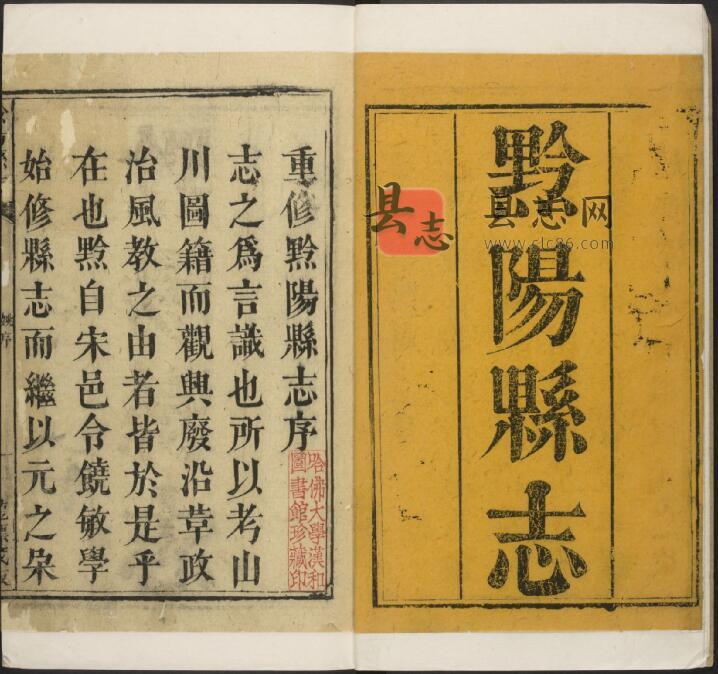 黔陽縣志
县志
县志网
www.clc86.com
重修黔陽縣志序
志之為言識也所以考山
川圖籍而觀興廢沿革政
治風教之由者皆於是乎
在也黔自宋邑令饒敏學
始修縣志而繼以元之朵
哈佛大學漢和
圖書館珍藏印